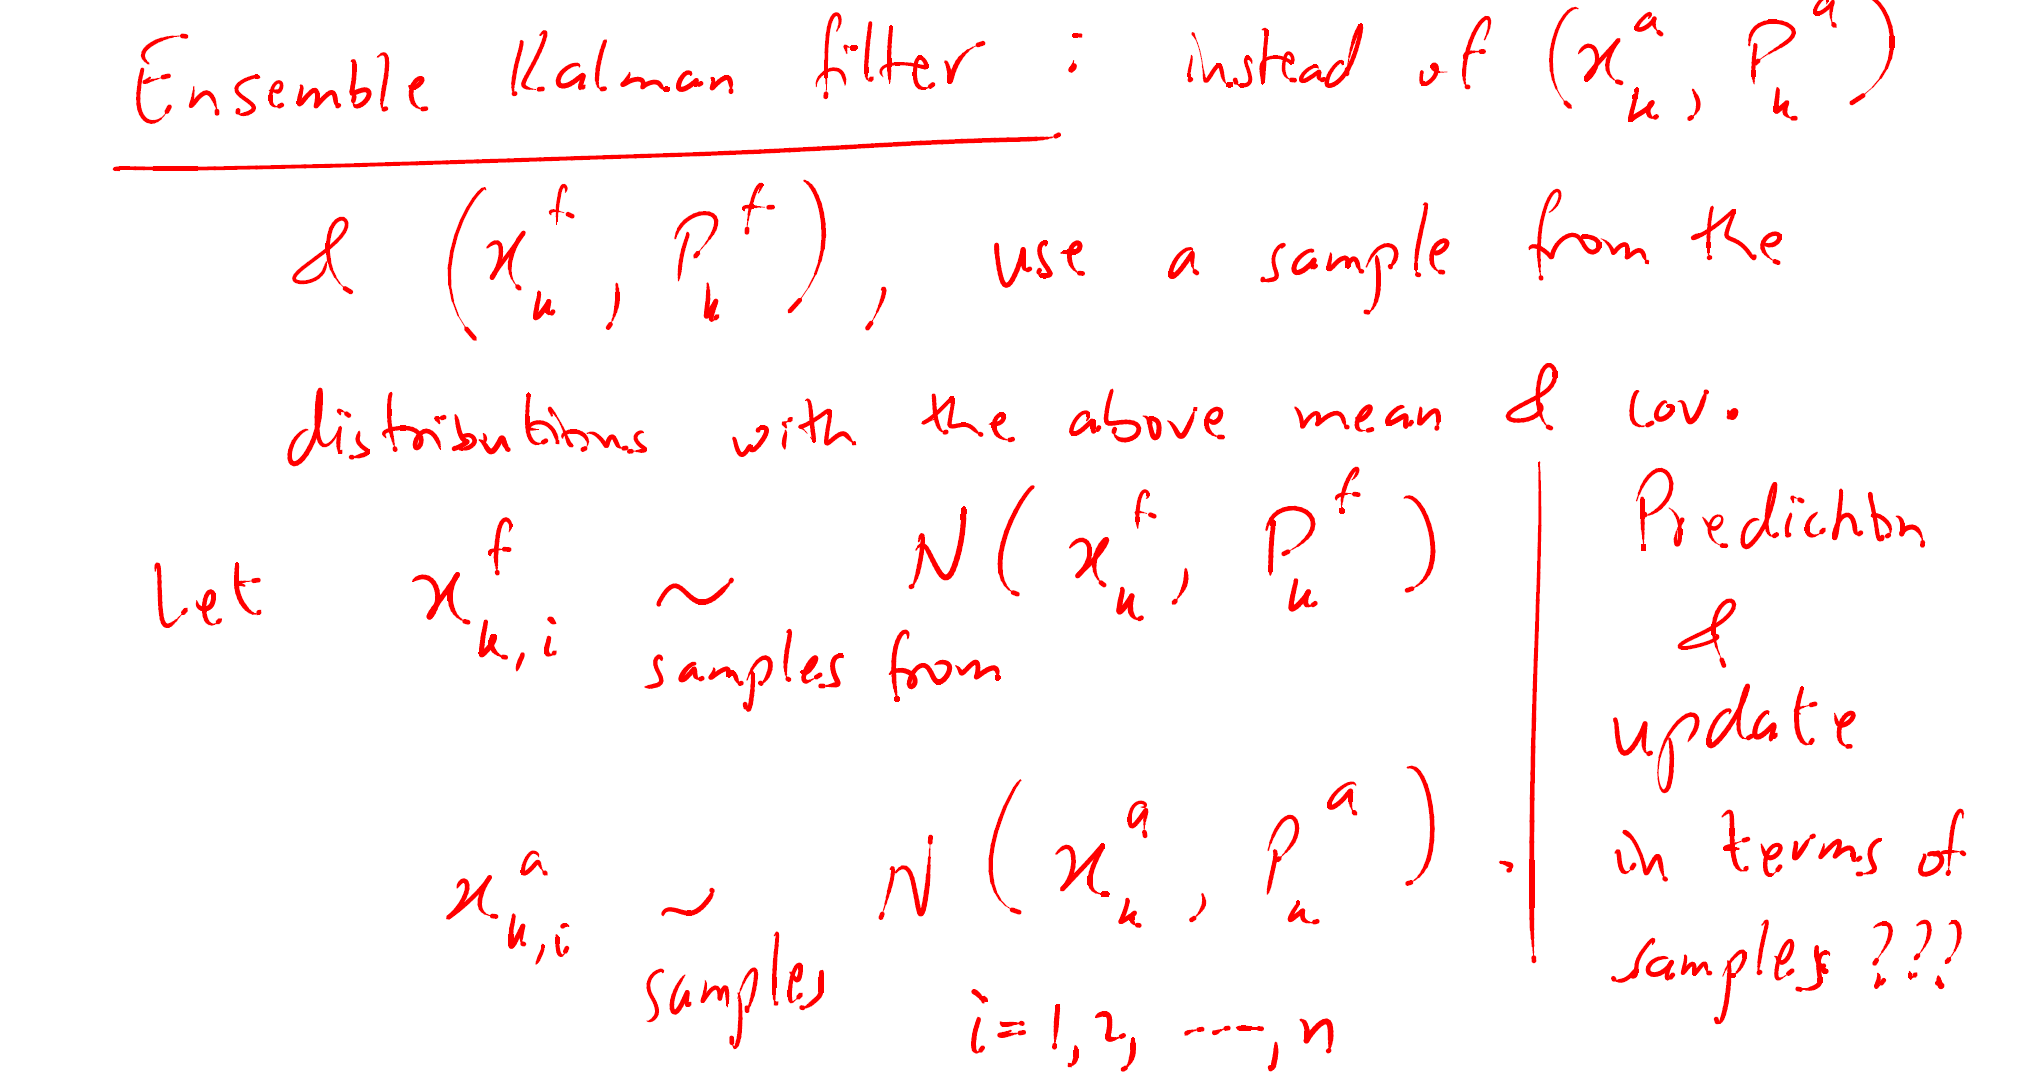 Ensemble Kalman filter : instead of (x_k^a, P_k^a)
& (x_k^f, P_k^f), use a sample from the
distributions with the above mean & cov.
Let x_{k,i}^f ~ N(x_k^f, P_k^f)
samples from
x_{k,i}^a ~ N(x_k^a, P_k^a).
samples
i=1,2, ----, n
Prediction
&
update
in terms of
samples ???